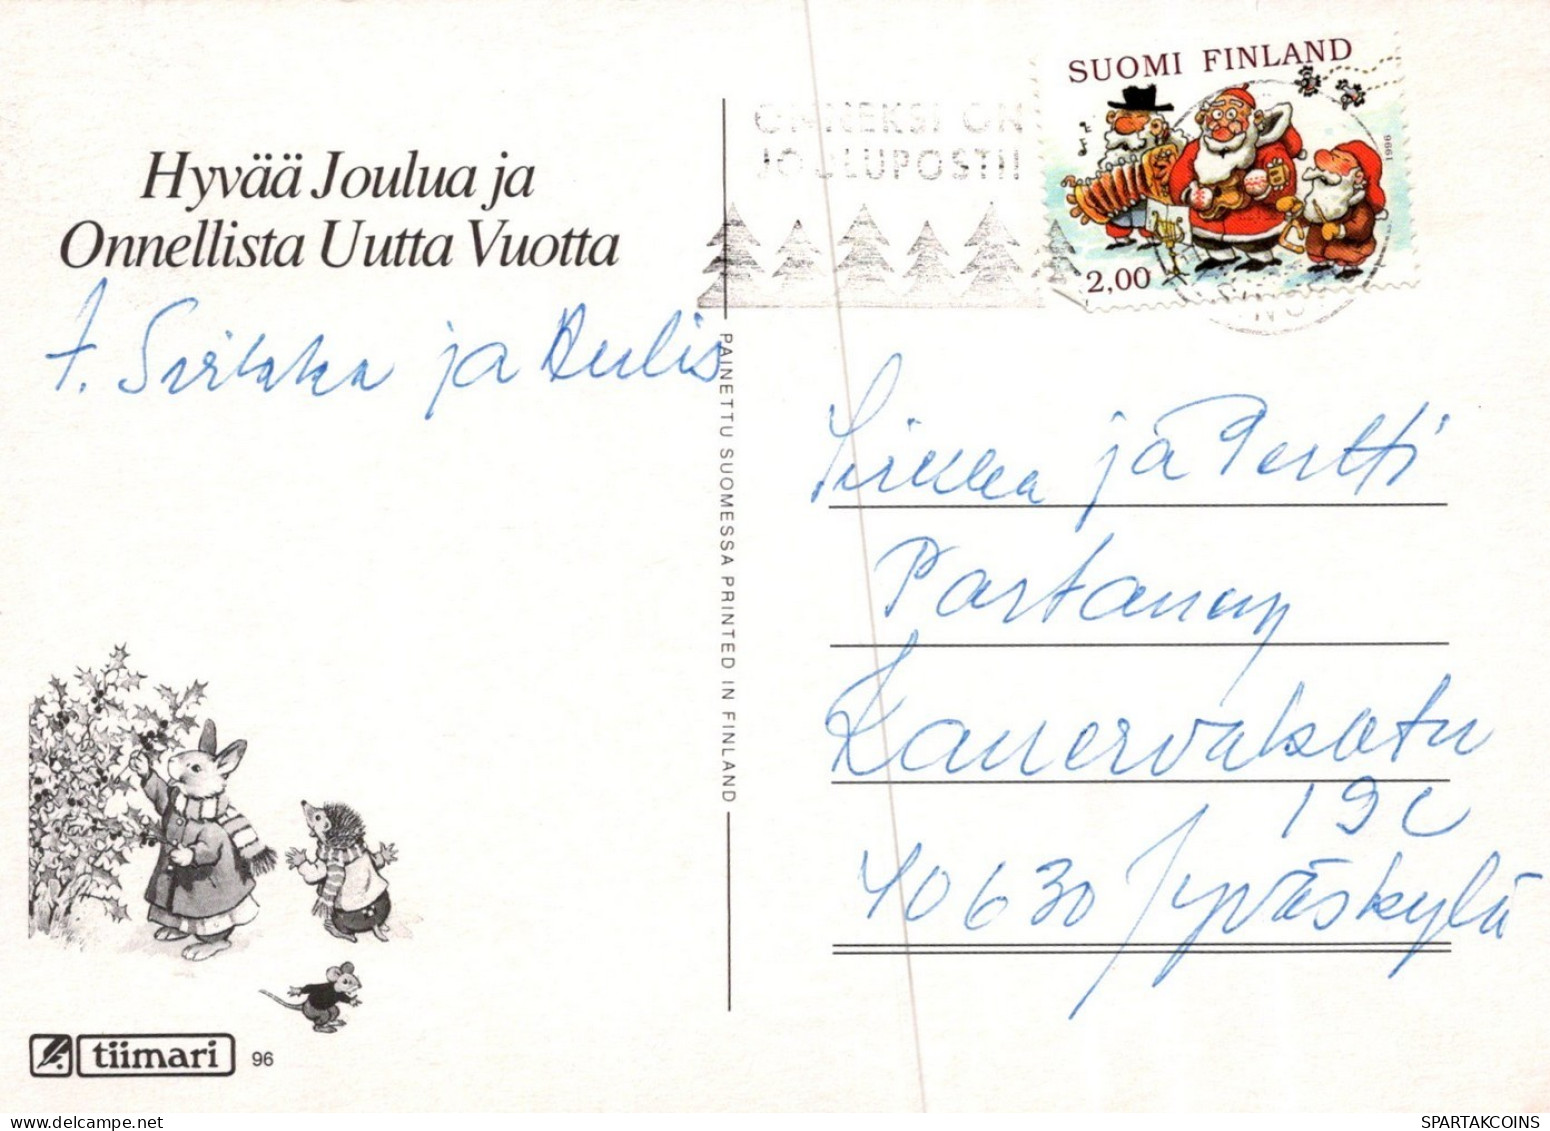 SUOMI FINLAND
1996
2,00
ONNEKSI ON
JOULUPOSTI!
Hyvää Joulua ja
Onnellista Uutta Vuotta
T. Sirkka ja Aulis
PAINETTU SUOMESSA PRINTED IN FINLAND
Sirkka ja Pertti
Partanen
Kanervakatu
19 C
40630 Jyväskylä
tiimari 96
SPARTAKCOINS